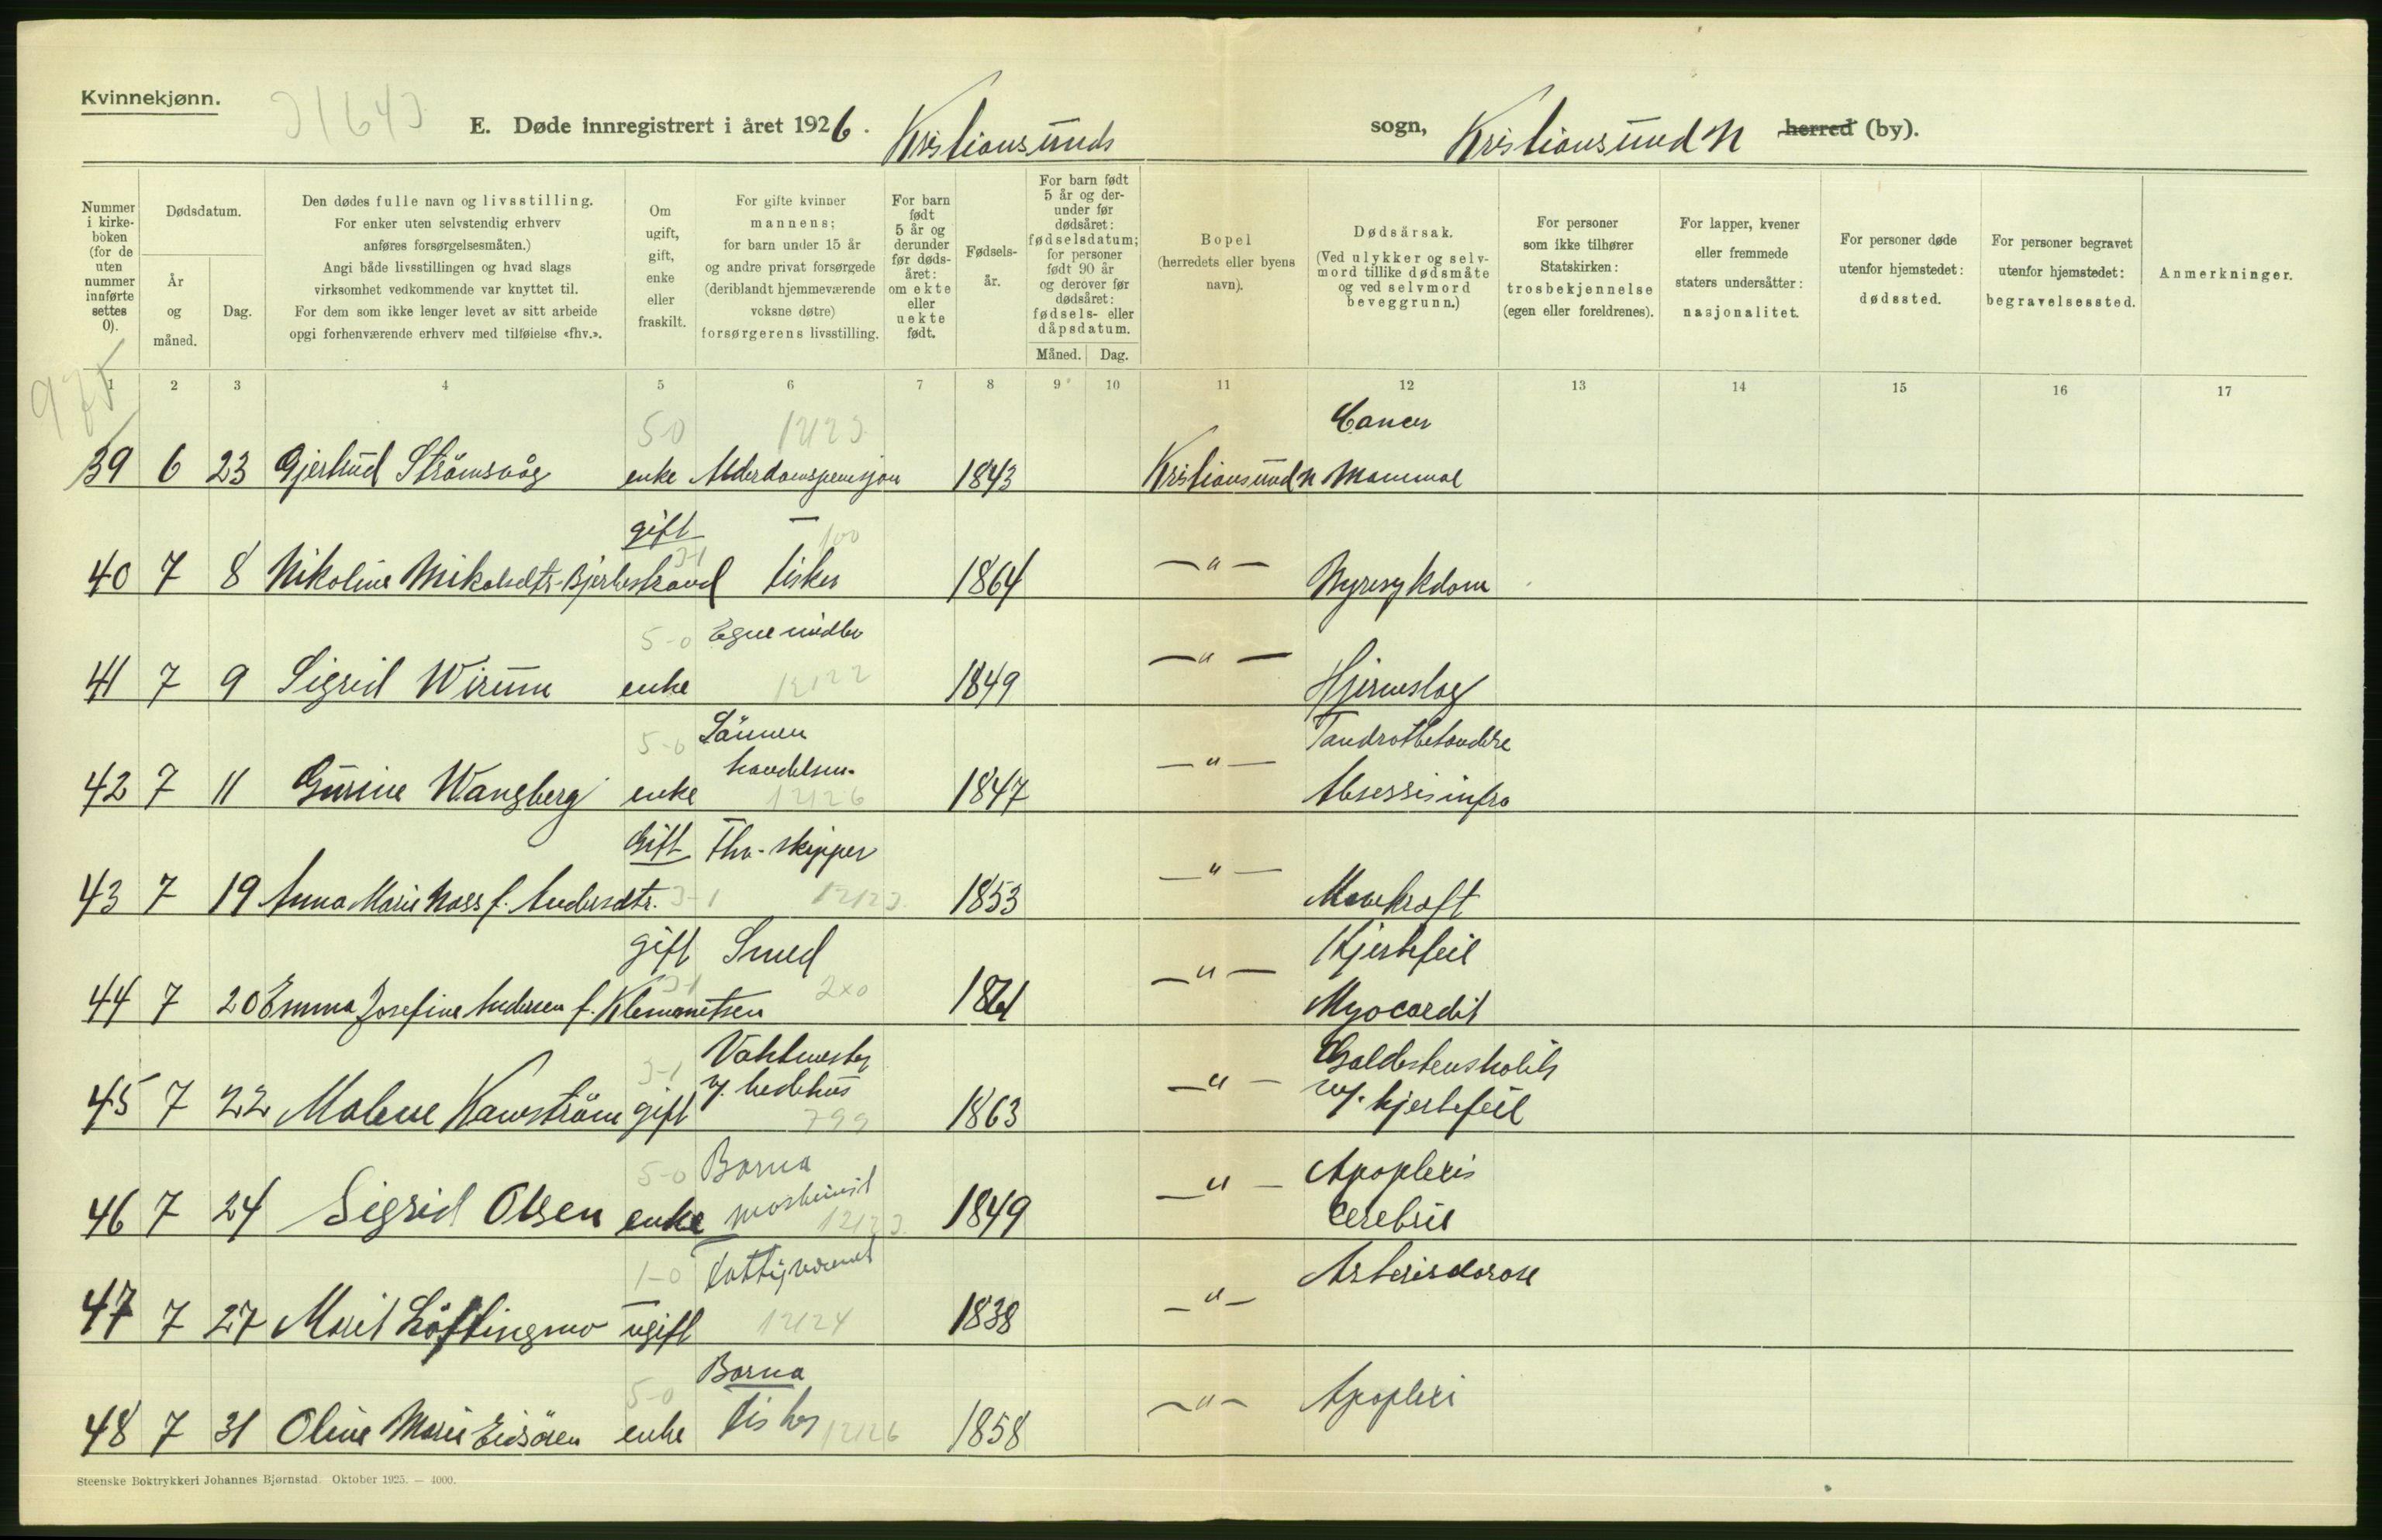 Kvinnekjønn.
31643
E. Døde innregistrert i året 1926. Kristiansunds sogn, Kristiansund N herred (by).
Nummer i kirke-boken (for de uten nummer innførte settes 0).
Dødsdatum.
År og måned.
Dag.
Den dødes fulle navn og livsstilling.
For enker uten selvstendig erhverv
anføres forsørgelsesmåten.)
Angi både livsstillingen og hvad slags
virksomhet vedkommende var knyttet til.
For dem som ikke lenger levet av sitt arbeide
opgi forhenværende erhverv med tilføielse «fhv.».
Om ugift, gift, enke eller fraskilt.
For gifte kvinner
mannens;
for barn under 15 år
og andre privat forsørgede
(deriblandt hjemmeværende
voksne døtre)
forsørgerens livsstilling.
For barn født 5 år og derunder før døds-året: om ekte eller uekte født.
Fødsels-år.
For barn født 5 år og der-under før dødsåret: fødselsdatum; for personer født 90 år og derover før dødsåret: fødsels- eller dåpsdatum.
Måned. Dag.
Bopel
(herredets eller byens
navn).
Dødsårsak.
(Ved ulykker og selv-
mord tillike dødsmåte
og ved selvmord
beveggrunn.)
For personer
som ikke tilhører
Statskirken:
trosbekjennelse
(egen eller foreldrenes).
For lapper, kvener
eller fremmede
staters undersåtter:
nasjonalitet.
For personer døde
utenfor hjemstedet:
dødssted.
For personer begravet
utenfor hjemstedet:
begravelsessted.
Anmerkninger.
1 2 3 4 5 6 7 8 9 10 11 12 13 14 15 16 17
50 12123 Cancer
39 6 23 Gjertrud Strömsvåg enke Alderdomspensjon 1843 Kristiansund N Mammae
gift 100
40 7 8 Nikoline Mikalsdtr. Bjerkestrand 3-1 fisker 1864 —"— Nyresykdom
5-0 Egne midler
41 7 9 Sigrid Wirum enke 12122 1849 —"— Hjerneslag
5-0 Sönnen
handelsm.
42 7 11 Gurine Wangberg enke 12126 1847 —"—
Gift Fhv. skipper
43 7 19 Anna Marie Nass f. Andersdtr. 3-1 12123 1853 —"— Mavekræft
gift Smed Hjertefeil
44 7 20 Emma Josefine Andersen f. Klementsen 3-1 2x0 1861 —"— Myocardit
Vaktmester Galdestenskolik
45 7 22 Malene Kawström gift 3-1 v/ bedehus 799 1863 —"— m/. hjertefeil
5-0 Barna Apoplexis
46 7 24 Sigrid Olsen enke maskinist 12123 1849 —"— Cerebrie
1-0 Fattigvesenet Arteriosclerose
47 7 27 Marit Löftingsmo ugift 12124 1838 —"—
5-0 Barna
48 7 31 Oline Marie Eidsören enke fisker 12126 1858 —"— Apoplexi
Steenske Boktrykkeri Johannes Bjørnstad. Oktober 1925. — 4000.